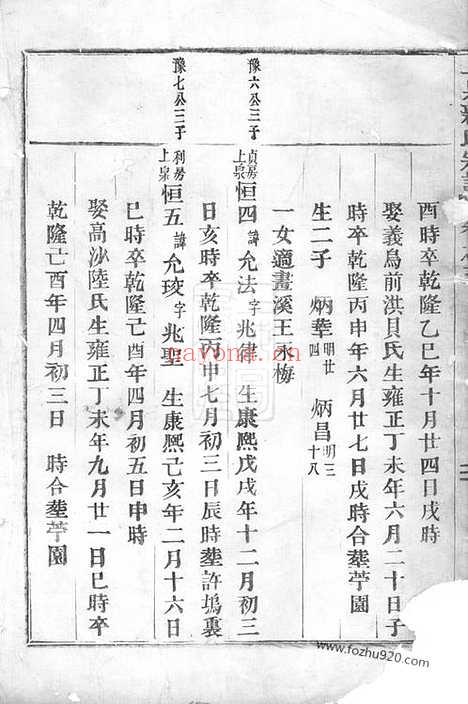 酉時卒乾隆乙巳年十月廿四日戌時
娶義烏前洪貝氏生雍正丁未年六月二十日子
時卒乾隆丙申年六月廿七日戌時合塟苧園
生二子 炳華明廿四 炳昌明三十八
一女適畫溪王永梅
豫六公三子
貞房上泉恒四諱允法字兆律 生康熙戊戌年十二月初三
日亥時卒乾隆丙申七月初三日辰時塟許塢裏
豫七公三子
利房上泉恒五諱允玫字兆聖 生康熙己亥年二月十六日
巳時卒乾隆己酉年四月初五日申時
娶高沙陸氏生雍正丁未年九月廿一日巳時卒
乾隆己酉年四月初三日 時合塟苧園
nayona.cn
www.fozhu920.com